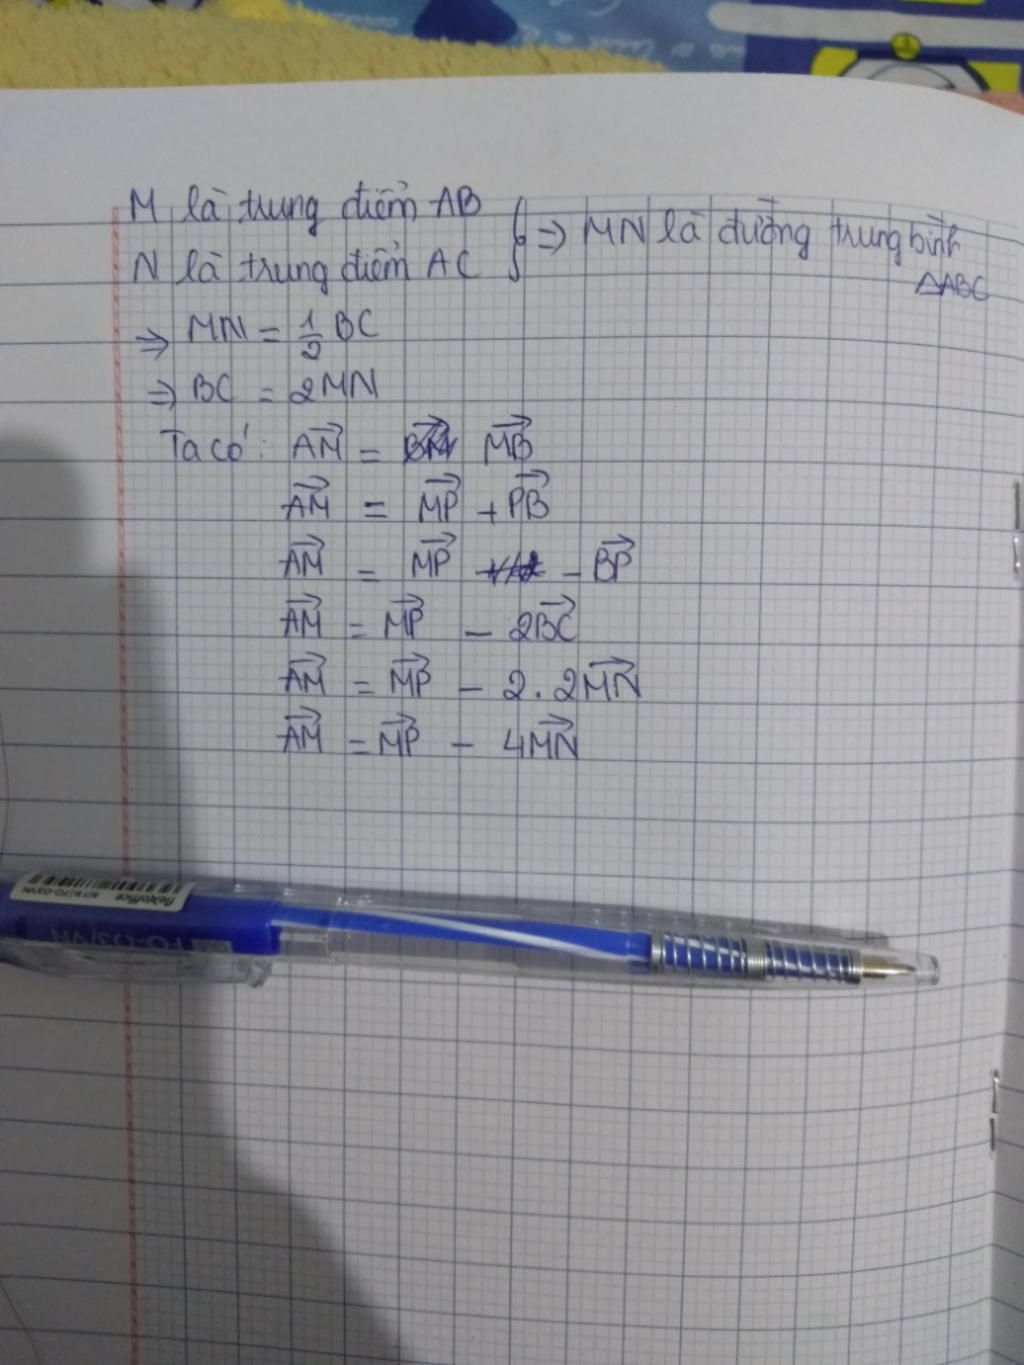 M là trung điểm AB
N là trung điểm AC
} ⇒ MN là đường trung bình
△ABC
⇒ MN = 1/2 BC
⇒ BC = 2MN
Ta có: AM⃗ = MB⃗
AM⃗ = MP⃗ + PB⃗
AM⃗ = MP⃗ - BP⃗
AM⃗ = MP⃗ - 2BC⃗
AM⃗ = MP⃗ - 2.2MN⃗
AM⃗ = MP⃗ - 4MN⃗
flexoffice
FO-03/VN